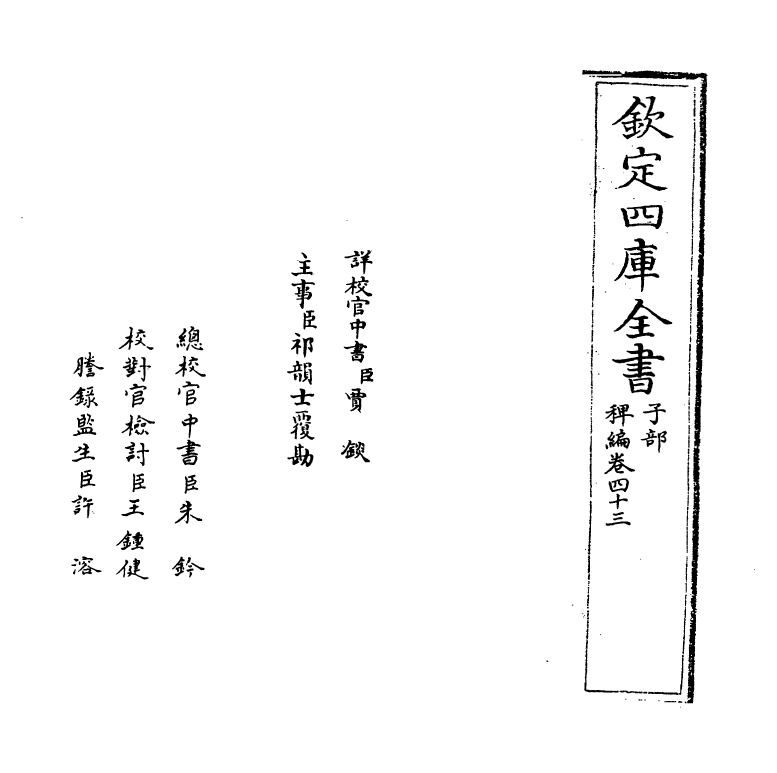 欽定四庫全書
子部
稗編卷四十三
詳校官中書臣賈錟
主事臣祁韻士覆勘
總校官中書臣朱鈐
校對官檢討臣王鍾健
謄錄監生臣許溶